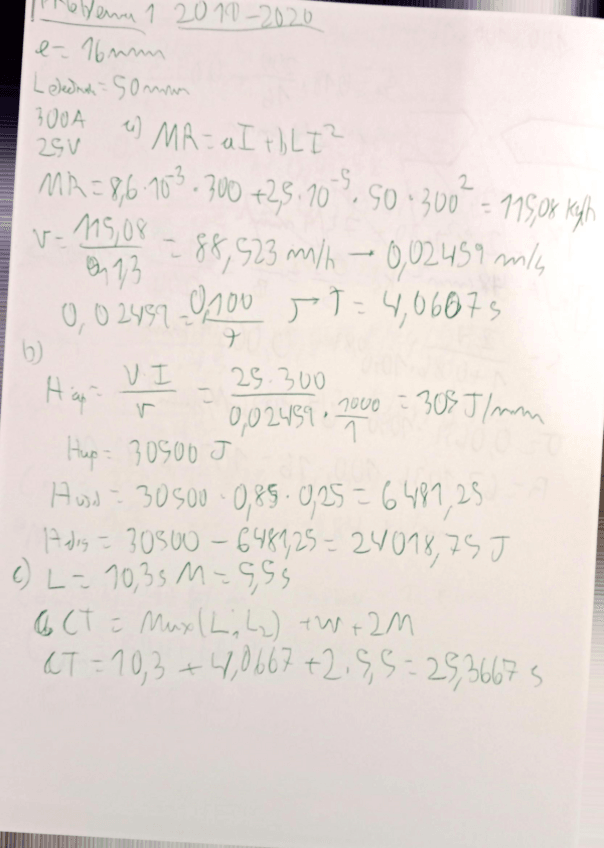 Problema 1 2019-2020
e = 16mm
L electrode = 50mm
300A
25V
a) MR = aI + bLI²
MR = 8,6·10⁻³ · 300 + 2,5·10⁻⁵ · 50 · 300² = 115,08 Kg/h
v = 115,08 / 1,3 = 88,523 m/h → 0,02459 m/s
0,02459 = 0,100 / T → T = 4,0607 s
b)
Hap = V·I / v = 25·300 / 0,02459 · 1000/1 = 305 J/mm
Hap = 30500 J
Husd = 30500 · 0,85 · 0,25 = 6481,25
Hdis = 30500 - 6481,25 = 24018,75 J
c) L = 10,3s M = 5,5s
CT = Max(L1, L2) + w + 2M
CT = 10,3 + 4,0667 + 2·5,5 = 25,3667 s